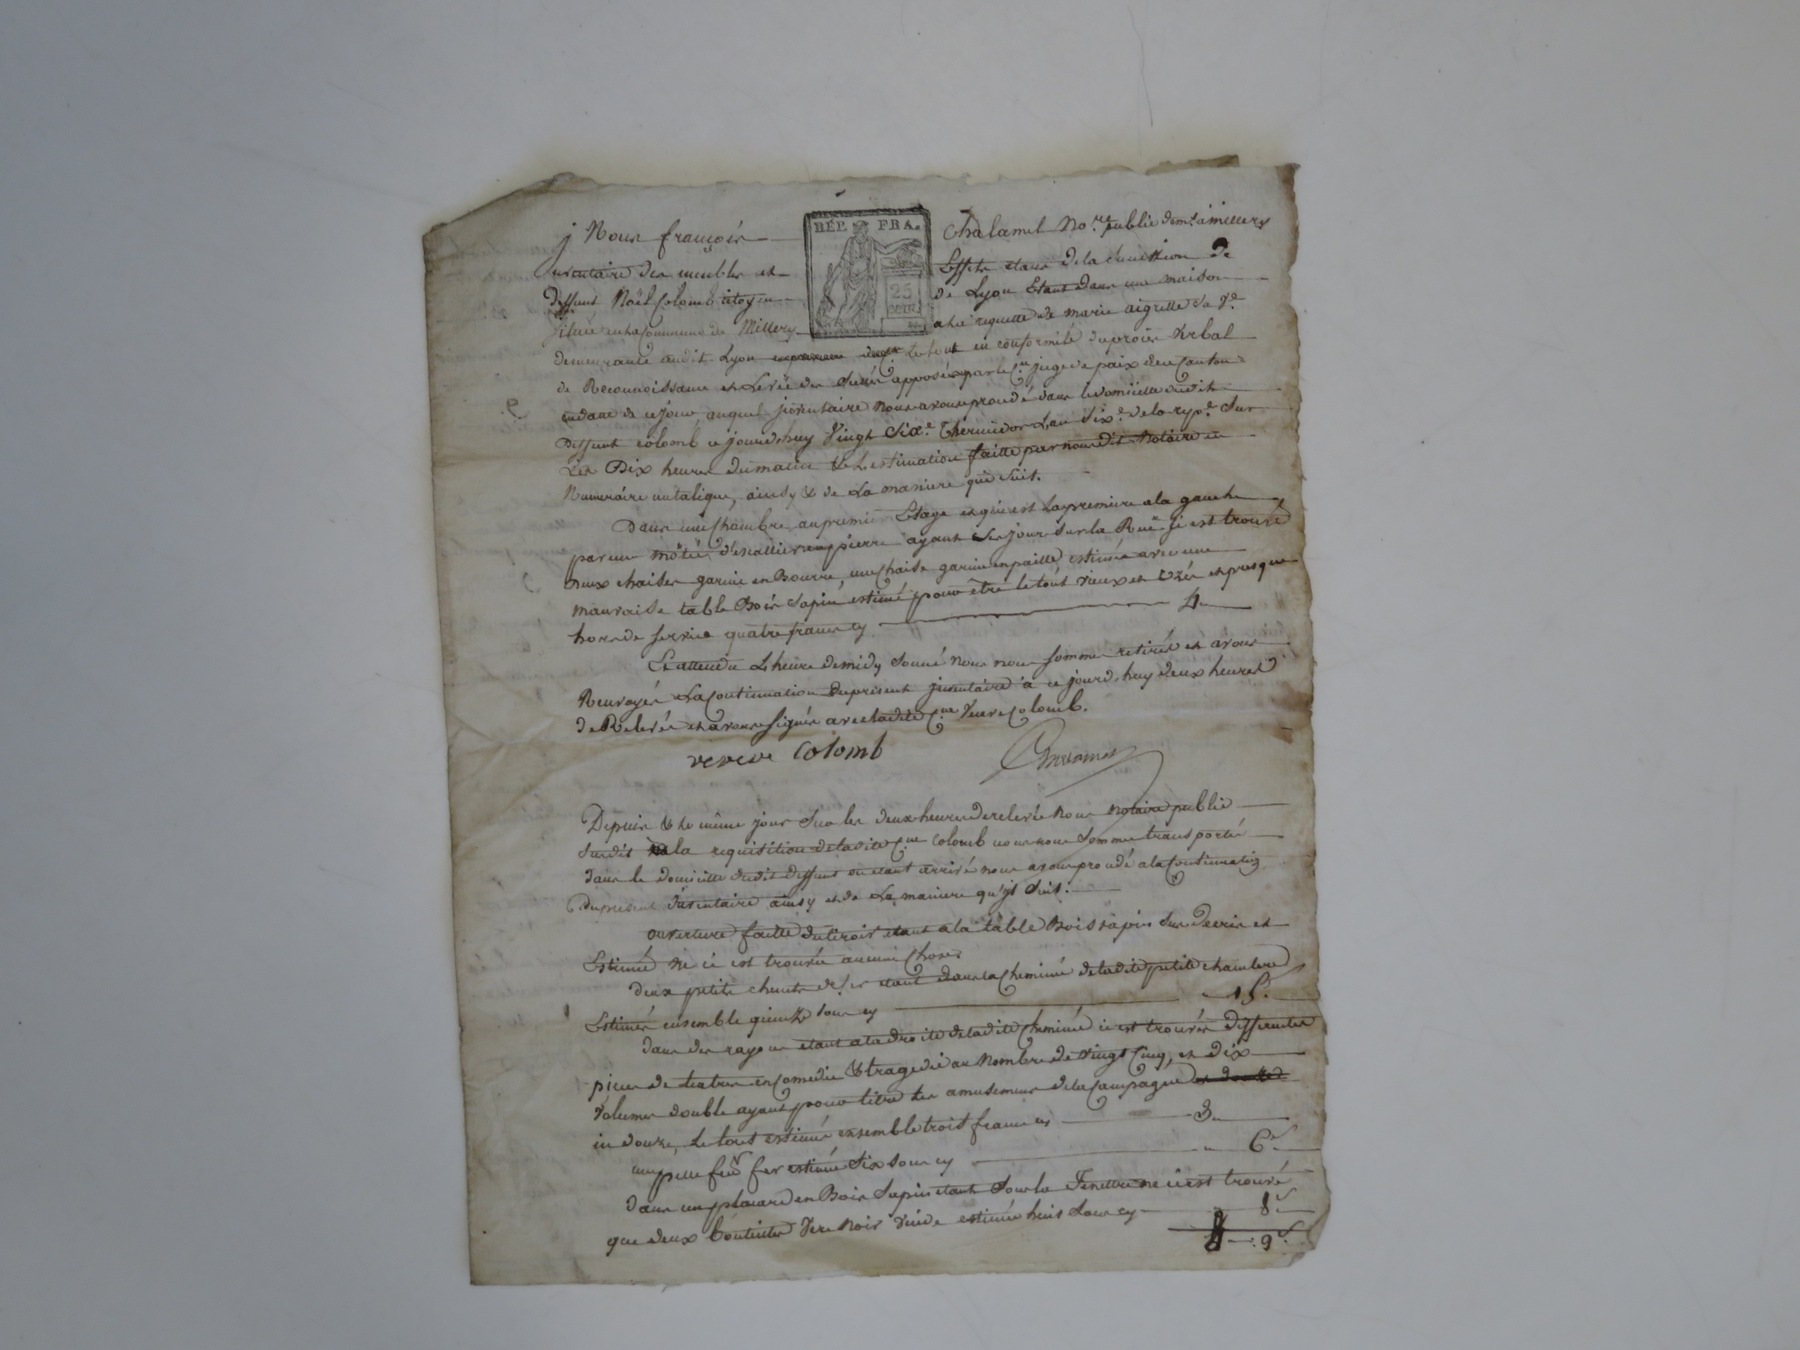 j Nous françois Chalamel No.re public dem.t a millery
inventaire des meubles et Effets etans de la succession de
deffunt Noël Colomb citoyen de Lyon Etant dans une maison
située en la Commune de Millery a la requette de marie aigrette sa v.e
demeurante audit Lyon Le tout en conformité du procès verbal
de Reconnoissance et Levée des sceés apposés par le C.en juge de paix de ce Canton
en date de ce jour auquel jnventaire Nous avons procedé dans le domicille dudit
deffunt colomb ce jourdhuy Vingt Sixe. Thermidor L'an Six.e de la rep.e Sur
Les Dix heures du matin & L'estimation faitte par nous dit Notaire en
Numeraire metalique, ainsy & de La maniere que suit.
Dans une Chambre au premier Etage et qui est La premiere a la gauche
par une d'escallier en pierre ayant Ses jours sur la Rue ji est trouvé
deux chaises garnie en Bourre, une Chaise garnie en paille, estimée avec une
mauvaise table Bois Sapin estimé pour être le tout vieux et Uzée et presque
hors de service quatre francs cy 4
Et attendu L'heure de midy sonné nous nous somme retirés et avons
Renvoyés La Continuation du présent jnventaire à ce jourd'huy deux heures
de Relevée et avons signés avec ladite C.ne Veuve Colomb.
veveve colomb
Depuis & le même jour Sur les deux heures de relevée Nous Notaire public
susdit a la requisition de ladite C.ne Colomb nous nous somme transporté
dans le domicille dudit deffunt ou etant arrivé nous avons procedé a la Continuation
du present inventaire ainsy et de La maniere qu'jl Suit.
ouverture faitte du tiroir etant a la table Bois sapin sus decris et
Estimée ne ci est trouvée aucune Chose
deux petits chenets de fer etant dans la Cheminé de ladite petite chambre
Estimés ensemble quinze sous cy 15 s.
dans des rayons etant a la droite de ladite Cheminé ci est trouvés differentes
pieces de teatres en Comedie & tragedie au Nombre de vingt Cinq, et dix
Volumes double ayant pour titre Les amusemens de la Campagne
in douze, Le tout estimé ensemble trois francs cy 3
une pelle feu fer estimée Six sous cy 6 s
dans un placard en Bois Sapin etant Sous la Fenettre ne ci est trouvé
que deux bouteilles Vere Noir Vuide estimée huit sous cy 8 s
8 : 9 s